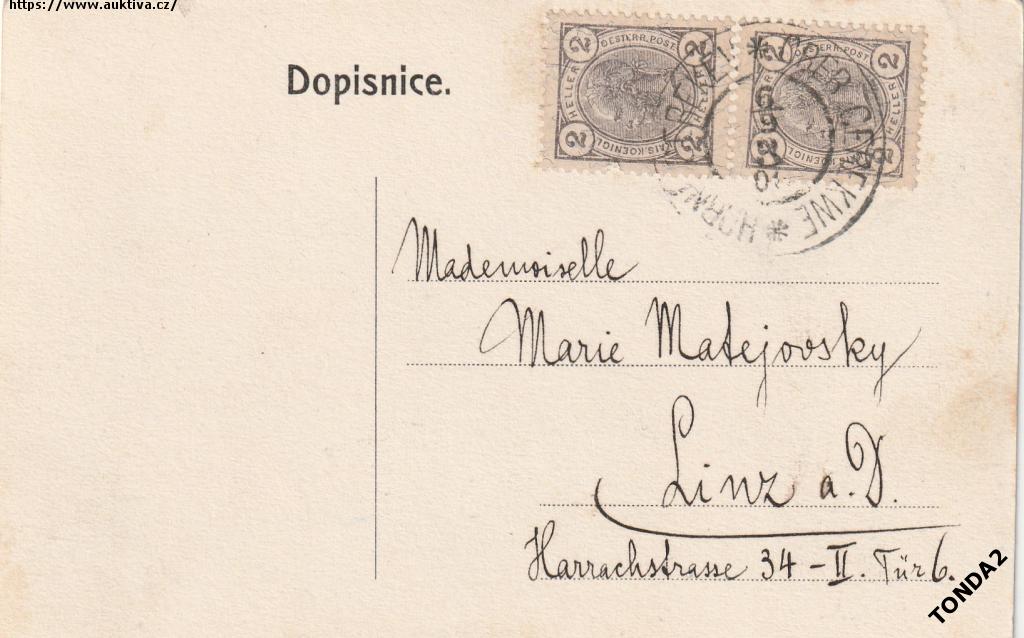 https://www.auktiva.cz/
Dopisnice.
2 OESTERR. POST 2
HELLER HELLER
2 KAIS. KOENIGL. 2
2 OESTERR. POST 2
HELLER
KAIS. KOENIGL.
OBER CEREKWE
Mademoiselle
Marie Matejovsky
Linz a. D.
Harrachstrasse 34 - II. Tür 6.
TONDA2